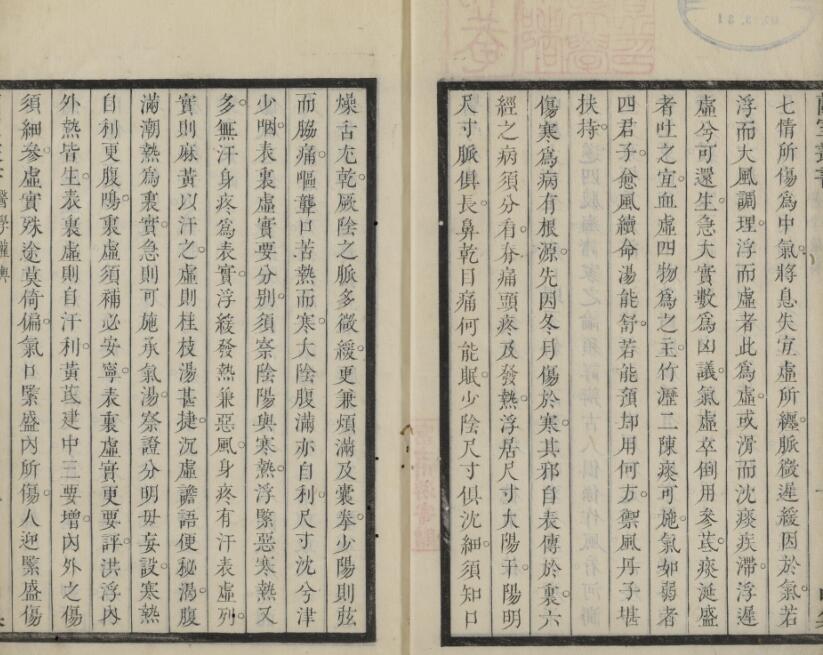 七情所傷爲中氣將息失宜虛所纏脈微遲緩因於氣若
浮而大風調理浮而虛者此爲虛或滑而沈痰疾滯浮遲
虛兮可還生急大實數爲凶議氣虛卒倒用參芪痰涎盛
者吐之宜血虛四物爲之主竹瀝二陳痰可施氣如弱者
四君子愈風續命湯能舒若能預却用何方禦風丹子堪
扶持
傷寒爲病有根源先因冬月傷於寒其邪自表傳於裏六
經之病須分看脊痛頭疼及發熱浮居尺寸大陽于陽明
尺寸脈俱長鼻乾目痛何能眠少陰尺寸俱沈細須知口
燥舌尤乾厥陰之脈多微緩更兼煩滿及囊拳少陽則弦
而脇痛嘔聾口苦熱而寒大陰腹滿亦自利尺寸沈兮津
少咽表裏虛實要分別須察陰陽與寒熱浮緊惡寒熱又
多無汗身疼爲表實浮緩發熱兼惡風身疼有汗表虛列
實則麻黃以汗之虛則桂枝湯甚捷沉虛譫語便秘渴腹
滿潮熱爲裏實急則可施承氣湯察證分明毋妄設寒熱
自利更腹鳴裏虛須補必安寧表裏虛實更要評洪浮內
外熱皆生表裏虛則自汗利黃芪建中三要增內外之傷
須細參虛實殊途莫倚偏氣口緊盛內所傷人迎緊盛傷
醫學權輿